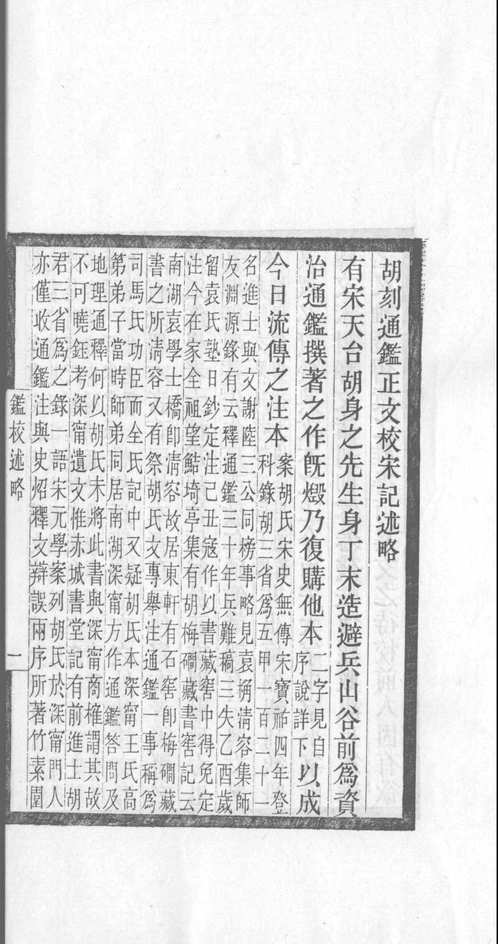 胡刻通鑑正文校宋記述略
有宋天台胡身之先生身丁末造避兵山谷前爲資
治通鑑撰著之作旣燬乃復購他本二字見自序說詳下以成
今日流傳之注本案胡氏宋史無傳宋寶祐四年登
科錄胡三省爲五甲一百二十一
名進士與文謝陸三公同榜事略見袁桷清容集師
友淵源錄有云釋通鑑三十年兵難稿三失乙酉歲
留袁氏塾日鈔定注己丑寇作以書藏窖中得免定
注今在家全祖望鮚埼亭集有胡梅磵藏書窖記云
南湖袁學士橋卽清容故居東軒有石窖卽梅磵藏
書之所清容又有祭胡氏文專舉注通鑑一事稱爲
司馬氏功臣而全氏記中又疑胡氏本深甯王氏高
第弟子當時師弟同居南湖深甯方作通鑑答問及
地理通釋何以胡氏未將此書與深甯商榷謂其故
不可曉鈺考深甯遺文惟赤城書堂記有前進士胡
君三省爲之錄一語宋元學案列胡氏於深甯門人
亦僅收通鑑注與史炤釋文辯誤兩序所著竹素園
鑑校述略
一